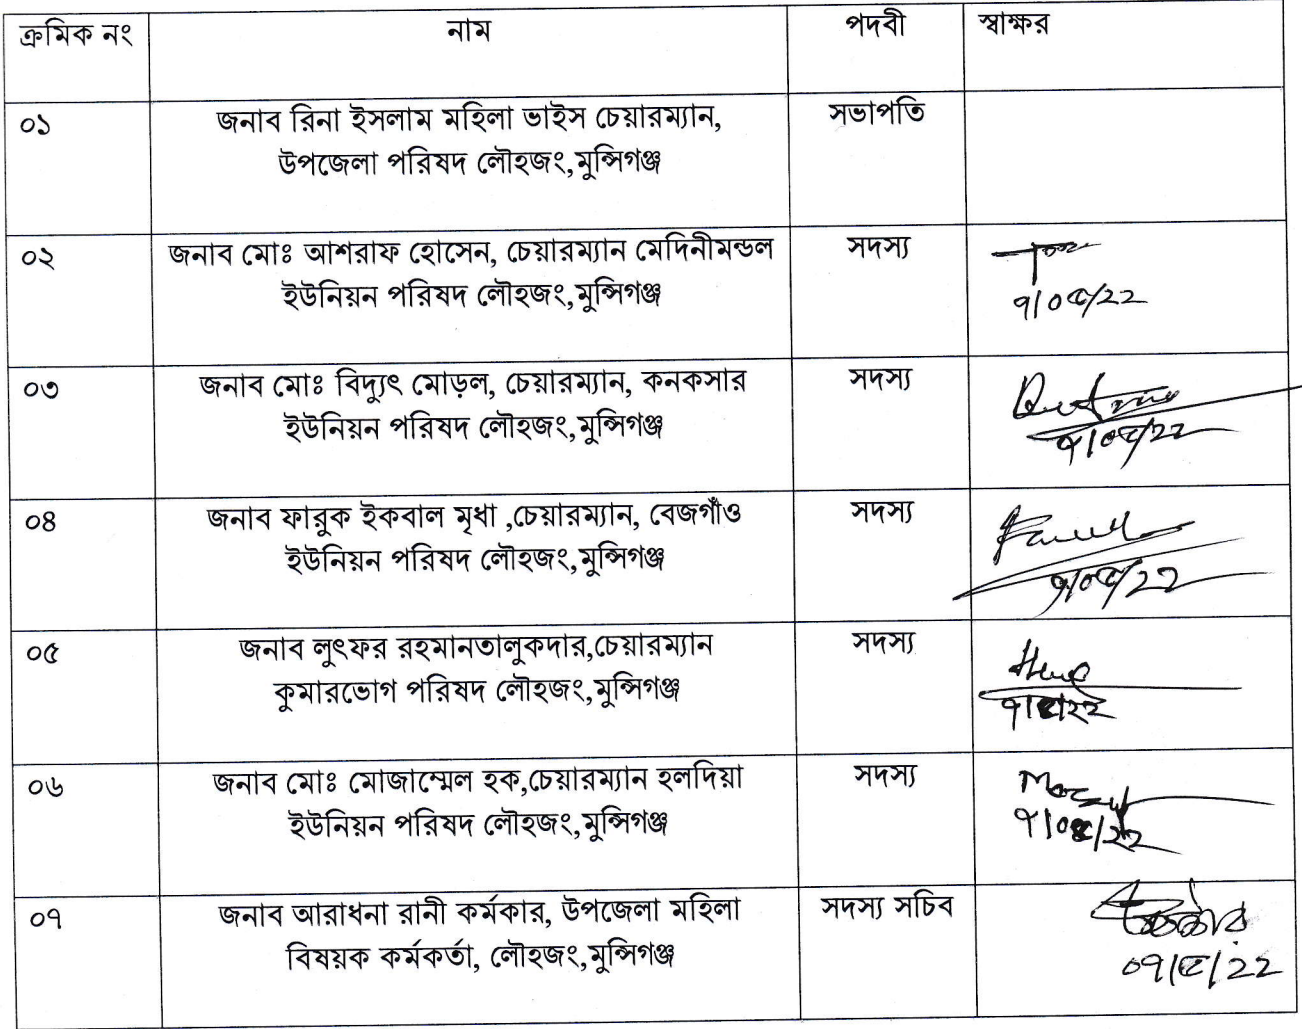 ক্রমিক নং নাম পদবী স্বাক্ষর
০১ জনাব রিনা ইসলাম মহিলা ভাইস চেয়ারম্যান, সভাপতি
উপজেলা পরিষদ লৌহজং,মুন্সিগঞ্জ
০২ জনাব মোঃ আশরাফ হোসেন, চেয়ারম্যান মেদিনীমন্ডল সদস্য
ইউনিয়ন পরিষদ লৌহজং,মুন্সিগঞ্জ
৭/০৫/২২
০৩ জনাব মোঃ বিদ্যুৎ মোড়ল, চেয়ারম্যান, কনকসার সদস্য
ইউনিয়ন পরিষদ লৌহজং,মুন্সিগঞ্জ
৭/০৫/২২
০৪ জনাব ফারুক ইকবাল মৃধা ,চেয়ারম্যান, বেজগাঁও সদস্য
ইউনিয়ন পরিষদ লৌহজং,মুন্সিগঞ্জ
৭/০৫/২২
০৫ জনাব লুৎফর রহমানতালুকদার,চেয়ারম্যান সদস্য
কুমারভোগ পরিষদ লৌহজং,মুন্সিগঞ্জ
৭/৫/২২
০৬ জনাব মোঃ মোজাম্মেল হক,চেয়ারম্যান হলদিয়া সদস্য
ইউনিয়ন পরিষদ লৌহজং,মুন্সিগঞ্জ
৭/০৫/২২
০৭ জনাব আরাধনা রানী কর্মকার, উপজেলা মহিলা সদস্য সচিব
বিষয়ক কর্মকর্তা, লৌহজং,মুন্সিগঞ্জ
০৭/৫/২২